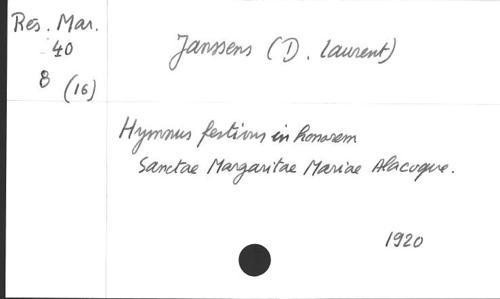 Res. Mar.
40
8 (16)
Janssens (D. Laurent)
Hymnus festivus in honorem
Sanctae Margaritae Mariae Alacoque.
1920